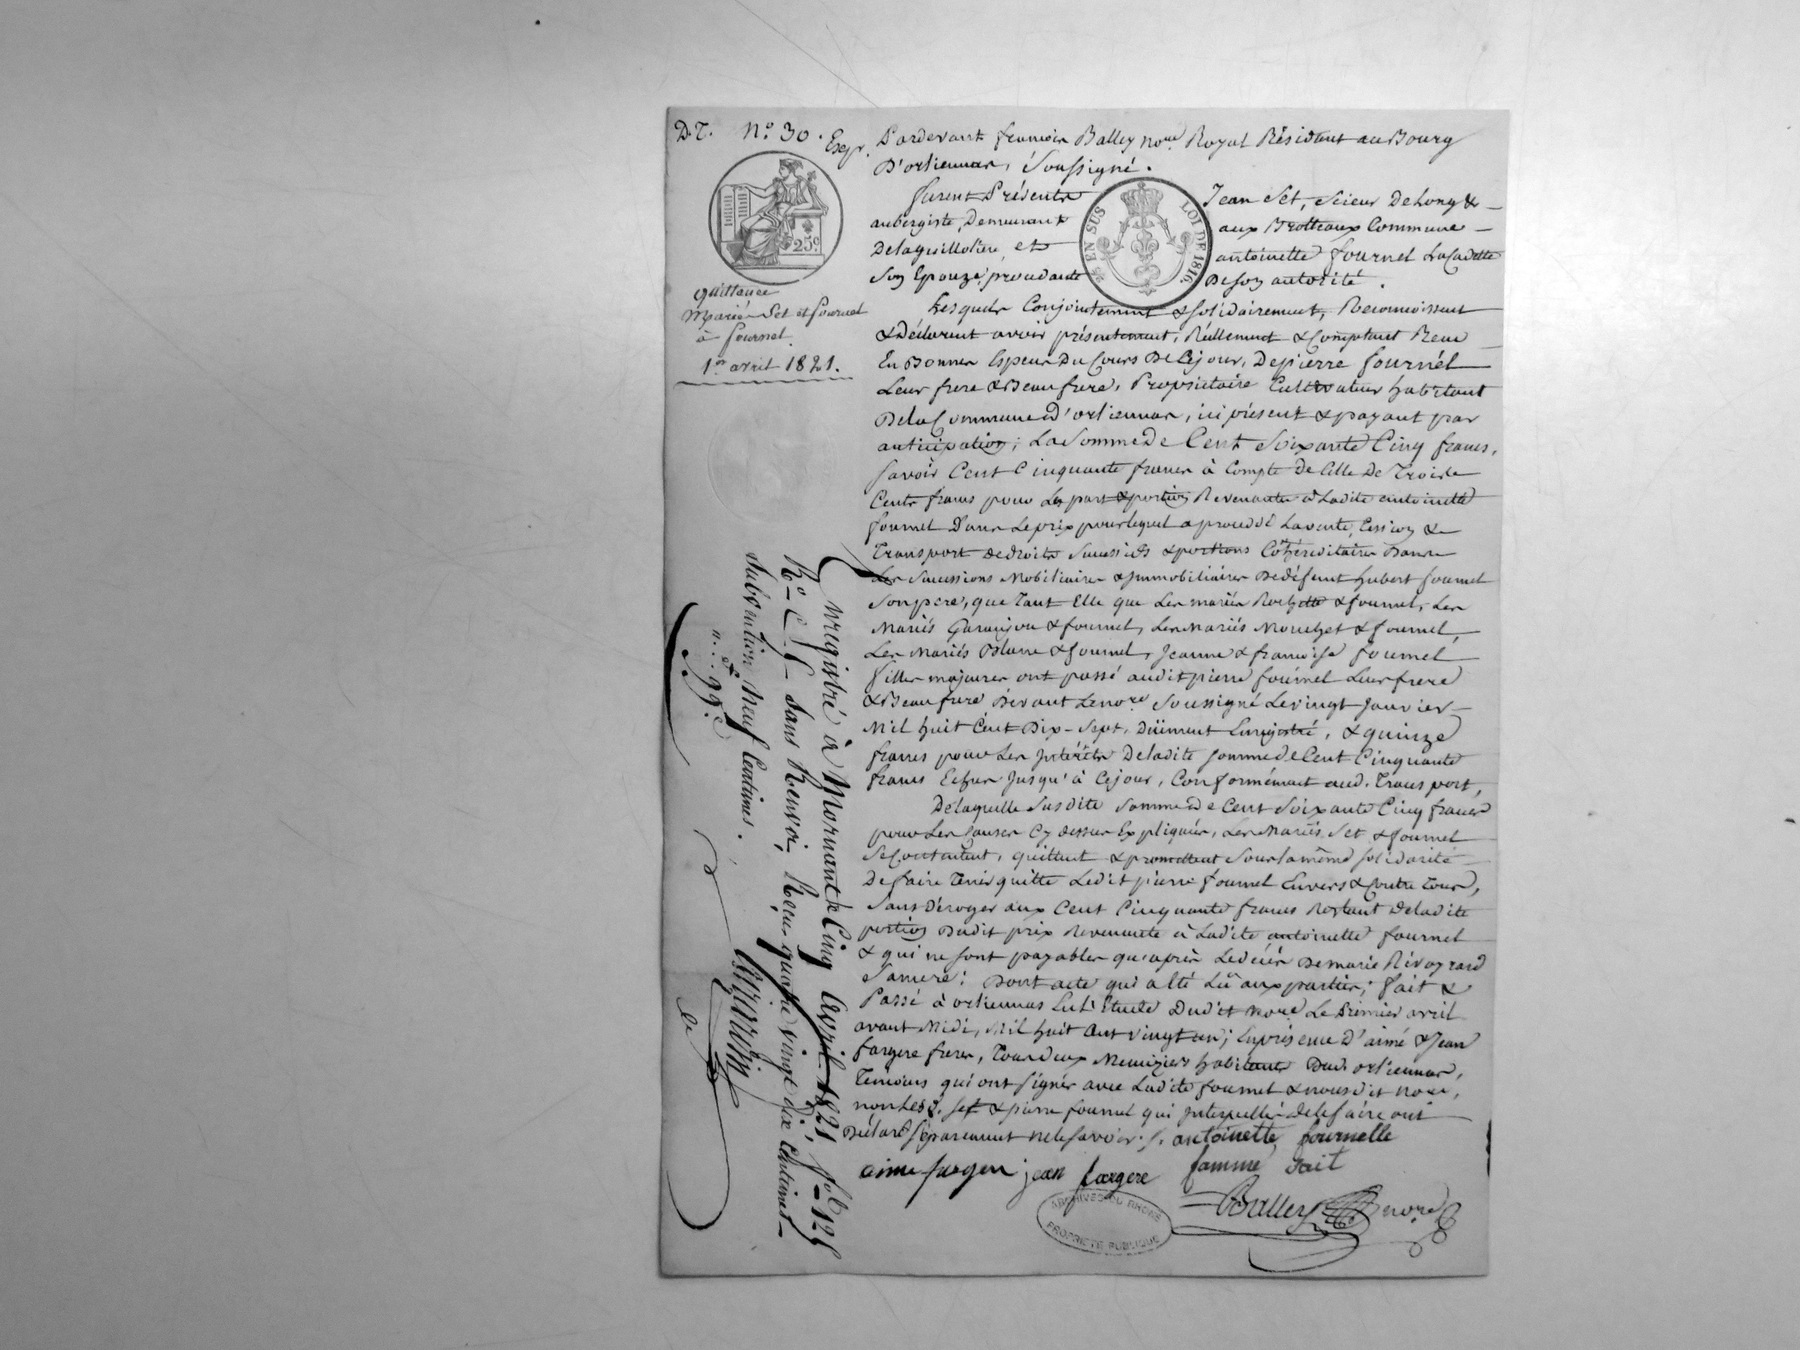 D.T. N.o 30. Expr.
25c
quittance
Mariés Set et fournel
à fournel
1er avril 1821.
Pardevant francois Balley nore Royal Résidant au Bourg
D'orliennas, soussigné.
furent Présents Jean Set, scieur de Long &
aubergiste, Demeurant aux Brotteaux Commune
Delaguillotiere, et antoinette fournel La Cadette
son Epouze, procedante de son autorité.
EN SUS LOI DE 1816.
Lesquels Conjointement & solidairement, Reconnoissent
& Déclarent avoir présentement, Réellement & Comptant Reçu
En Bonnes Especes Du Cours De Cejour, De pierre fournel
Leur frere & Beaufrere, Propriétaire Cultivateur habitant
Dela Commune d'orliennas, ici présent & payant par
anticipation; La Somme De Cent Soixante Cinq francs,
savoir Cent Cinquante francs à Compte De Celle De Trois
Cents francs pour les part & portion Revenantes à Ladite antoinette
fournel Dans Le prix pour lequel a procédé La vente, Cession &
Transport de droits Successifs & portions Cohéréditaires Dans
Les Successions Mobiliaires & Immobiliaires De défunt hubert fournel
Son pere, que Tant Elle que Les mariés Rochette & fournel, Les
Mariés Garanjou & fournel, Les Mariés Mouchet & fournel,
Les Mariés Blanc & fournel, Jeanne & francoise fournel
filles majeures ont passé audit pierre fournel Leur frere
& Beaufrere Devant Le nore Soussigné Le vingt Janvier
Mil huit Cent Dix-Sept, Düement Enregistré, & quinze
francs pour Les Intérêts Deladite somme de Cent Cinquante
francs Echus Jusqu'à Cejour, Conformément aud. Transport,
Delaquelle Susdite Somme de Cent Soixante Cinq francs
pour Les Causes Cy dessus Expliquées, Les Mariés Set & fournel
Se Contentent, quittent & promettent Sous la même solidarité
De faire Tenir quitte Ledit pierre fournel Envers & Contre Tous,
Sans Déroger aux Cent Cinquante francs Restant Deladite
portion Dudit prix Revenante à Ladite antoinette fournel
& qui ne sont payables qu'après Le décès De marie Révoyrard
Sa mere: Dont acte qui a été Lû aux parties; fait &
Passé à orliennas En L'Etude Dudit nore Le Premier avril
avant Midi, Mil huit Cent vingt un; En présence D'aimé & Jean
fargere freres, Tous deux Menuiziers habitants Dud. orliennas,
Temoins qui ont signés avec Ladite fournel & nousdit nore,
non Lesd. Set & pierre fournel qui Interpellés de le faire ont
Déclaré Séparément ne le savoir. antoinette fournelle
aime fargere jean fargere famme sait
Balley nore
ARCHIVES DU RHONE
PROPRIETE PUBLIQUE
Enregistré à Mornant le Cinq avril 1821 fo 125
Ro C 5 sans Renvoi, Reçu quatre vingt dix Centimes
subvention neuf Centimes.
99c